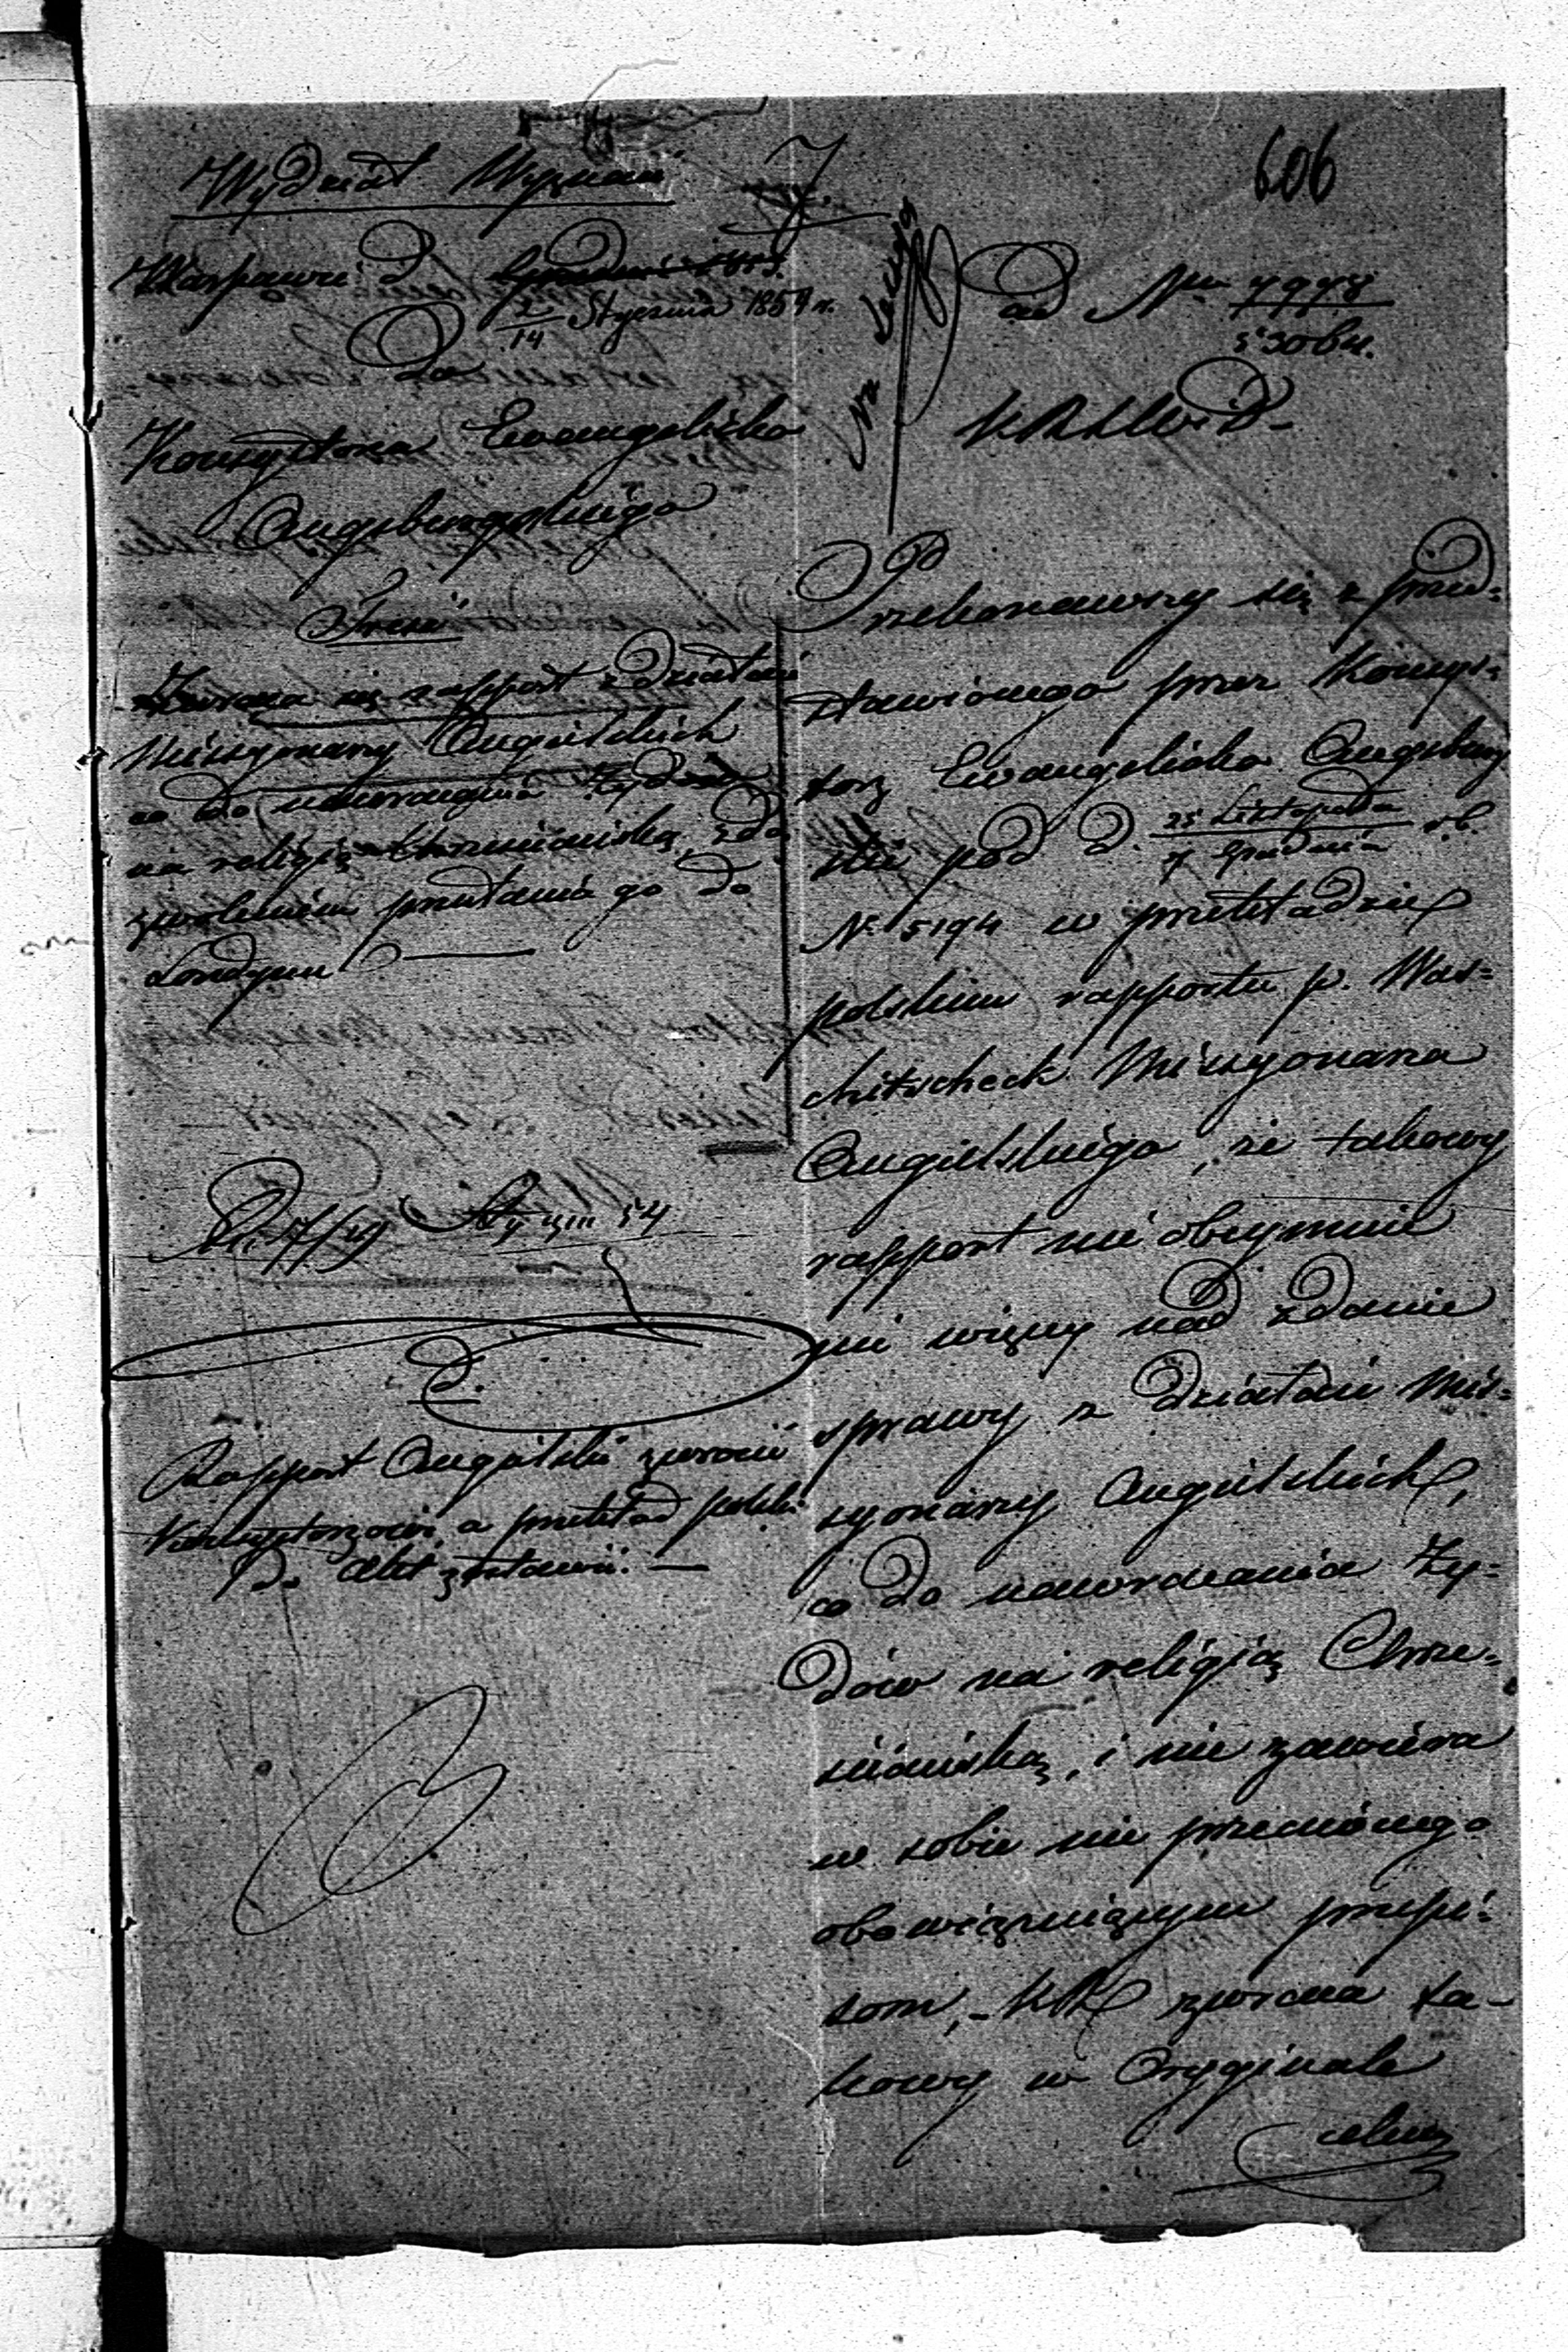 606
Wydział Wyznań
w Warszawie d. Grudnia 1853.
2/14 Stycznia 1854 r.
Do
Konsystorza Ewangelicko
Augsburgskiego
Treść
Zwraca się rapport z działań
Missyonarzy Angielskich
co do nawracania Żydów
na religią Chrześciańską, z do
zwoleniem przesłania go do
Londynu
Rapport Angielski zwrócić
Konsystorzowi a przekład polski
do Akt zostawić. —
ad Nrum 7978
5306 4.
K.R.S.W. i D.
Przekonawszy się z przed-
stawionego przez Konsys-
torz Ewangelicko Augsburg
ski pod d. 25 Listopada / 7 Grudnia r. b.
N. 5194 w przekładzie
polskim rapportu p. Was-
chitscheck Missyonarza
Angielskiego, że takowy
rapport nie obejmuie
nic więcej nad zdanie
sprawy z działań Mis-
syonarzy Angielskich,
co do nawracania Ży-
dów na religią Chrze-
ściańską, i nie zawiera
w sobie nic przeciwnego
obowiązuiącym przepi-
som, - KR zwraca ta-
kowy w Oryginale
celem